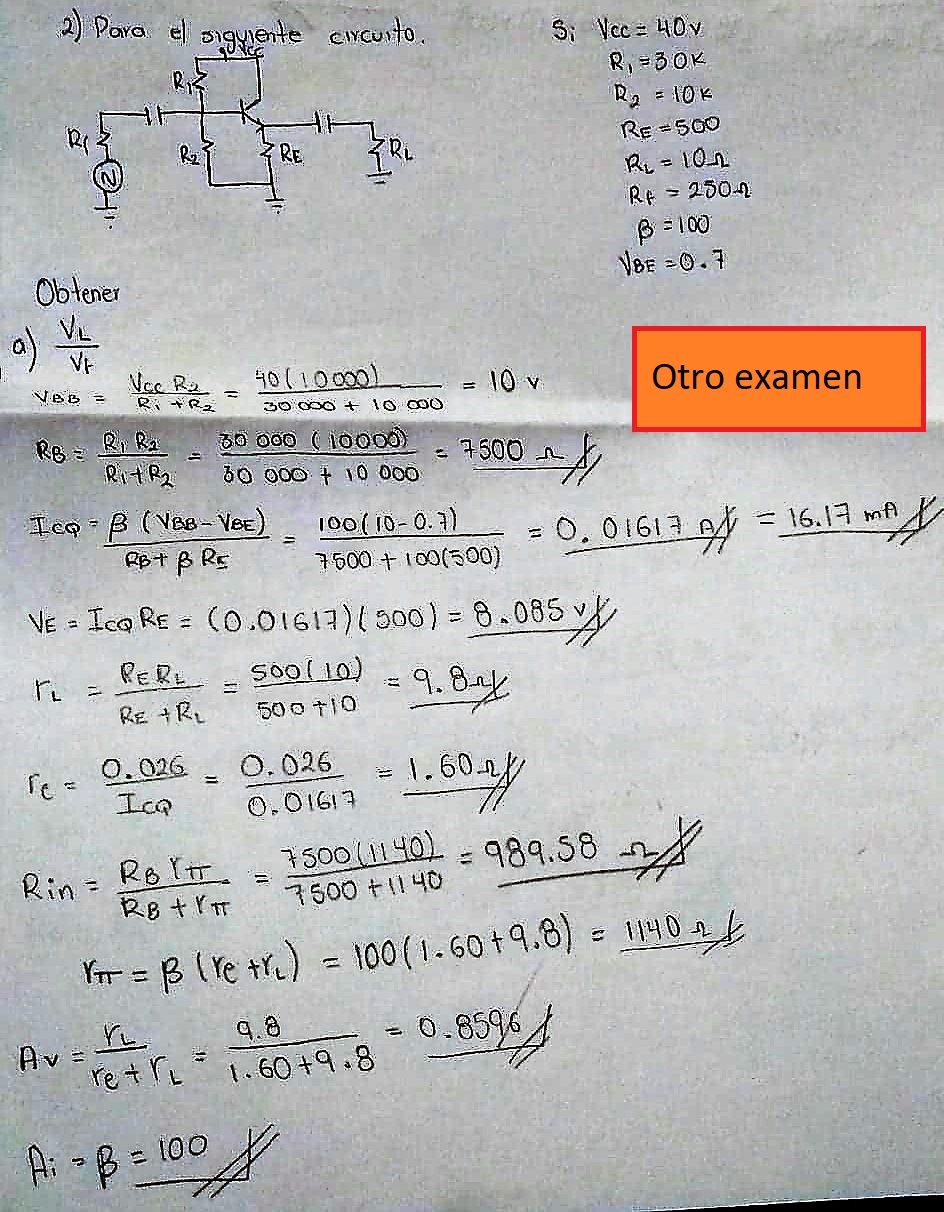 2) Para el siguiente circuito.
Si Vcc = 40v
R1 = 30K
R2 = 10K
RE = 500
RL = 10Ω
Rf = 250Ω
β = 100
VBE = 0.7
Vcc
R1
Rf
R2
RE
RL
N
Obtener
a) VL/Vf
Otro examen
VBB = Vcc R2 / R1 + R2 = 40(10000) / 30 000 + 10 000 = 10 v
RB = R1 R2 / R1 + R2 = 30 000 (10000) / 30 000 + 10 000 = 7500 Ω
ICQ = β (VBB - VBE) / RB + β RE = 100(10 - 0.7) / 7500 + 100(500) = 0.01617 A = 16.17 mA
VE = ICQ RE = (0.01617)(500) = 8.085 v
rL = RE RL / RE + RL = 500(10) / 500 + 10 = 9.8Ω
re = 0.026 / ICQ = 0.026 / 0.01617 = 1.60Ω
Rin = RB rπ / RB + rπ = 7500(1140) / 7500 + 1140 = 989.58 Ω
rπ = β (re + rL) = 100(1.60 + 9.8) = 1140 Ω
Av = rL / re + rL = 9.8 / 1.60 + 9.8 = 0.8596
Ai = β = 100